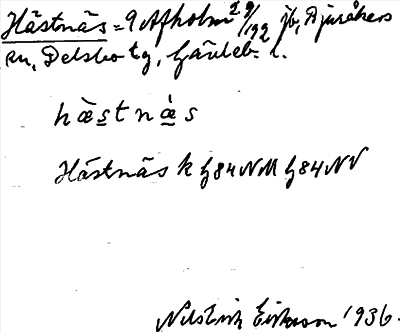 Hästnäs = 9 Afholm 29/192 jb, Bjuråkers
sn, Delsbo tg, Gävleb. l.
hæ̀stnæ̀s
Hästnäs k G84NM G84NV
Nils Erik Eriksson 1936.